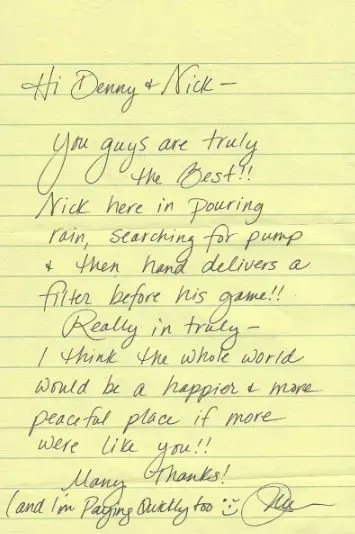 Hi Denny & Nick —
You guys are truly
the Best!!
Nick here in pouring
rain, searching for pump
& then hand delivers a
filter before his game!!
Really in truly —
I think the whole world
would be a happier & more
peaceful place if more
were like you!!
Many Thanks!
(and I'm Paying Quickly too